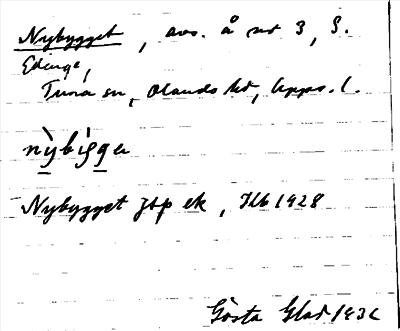 Nybygget, avs. å nr 3, S.
Edinge,
Tuna sn, Olands hd, Upps. l.
nỳbìgga
Nybygget Jtp ek, Jb 1928
Gösta Glad 193